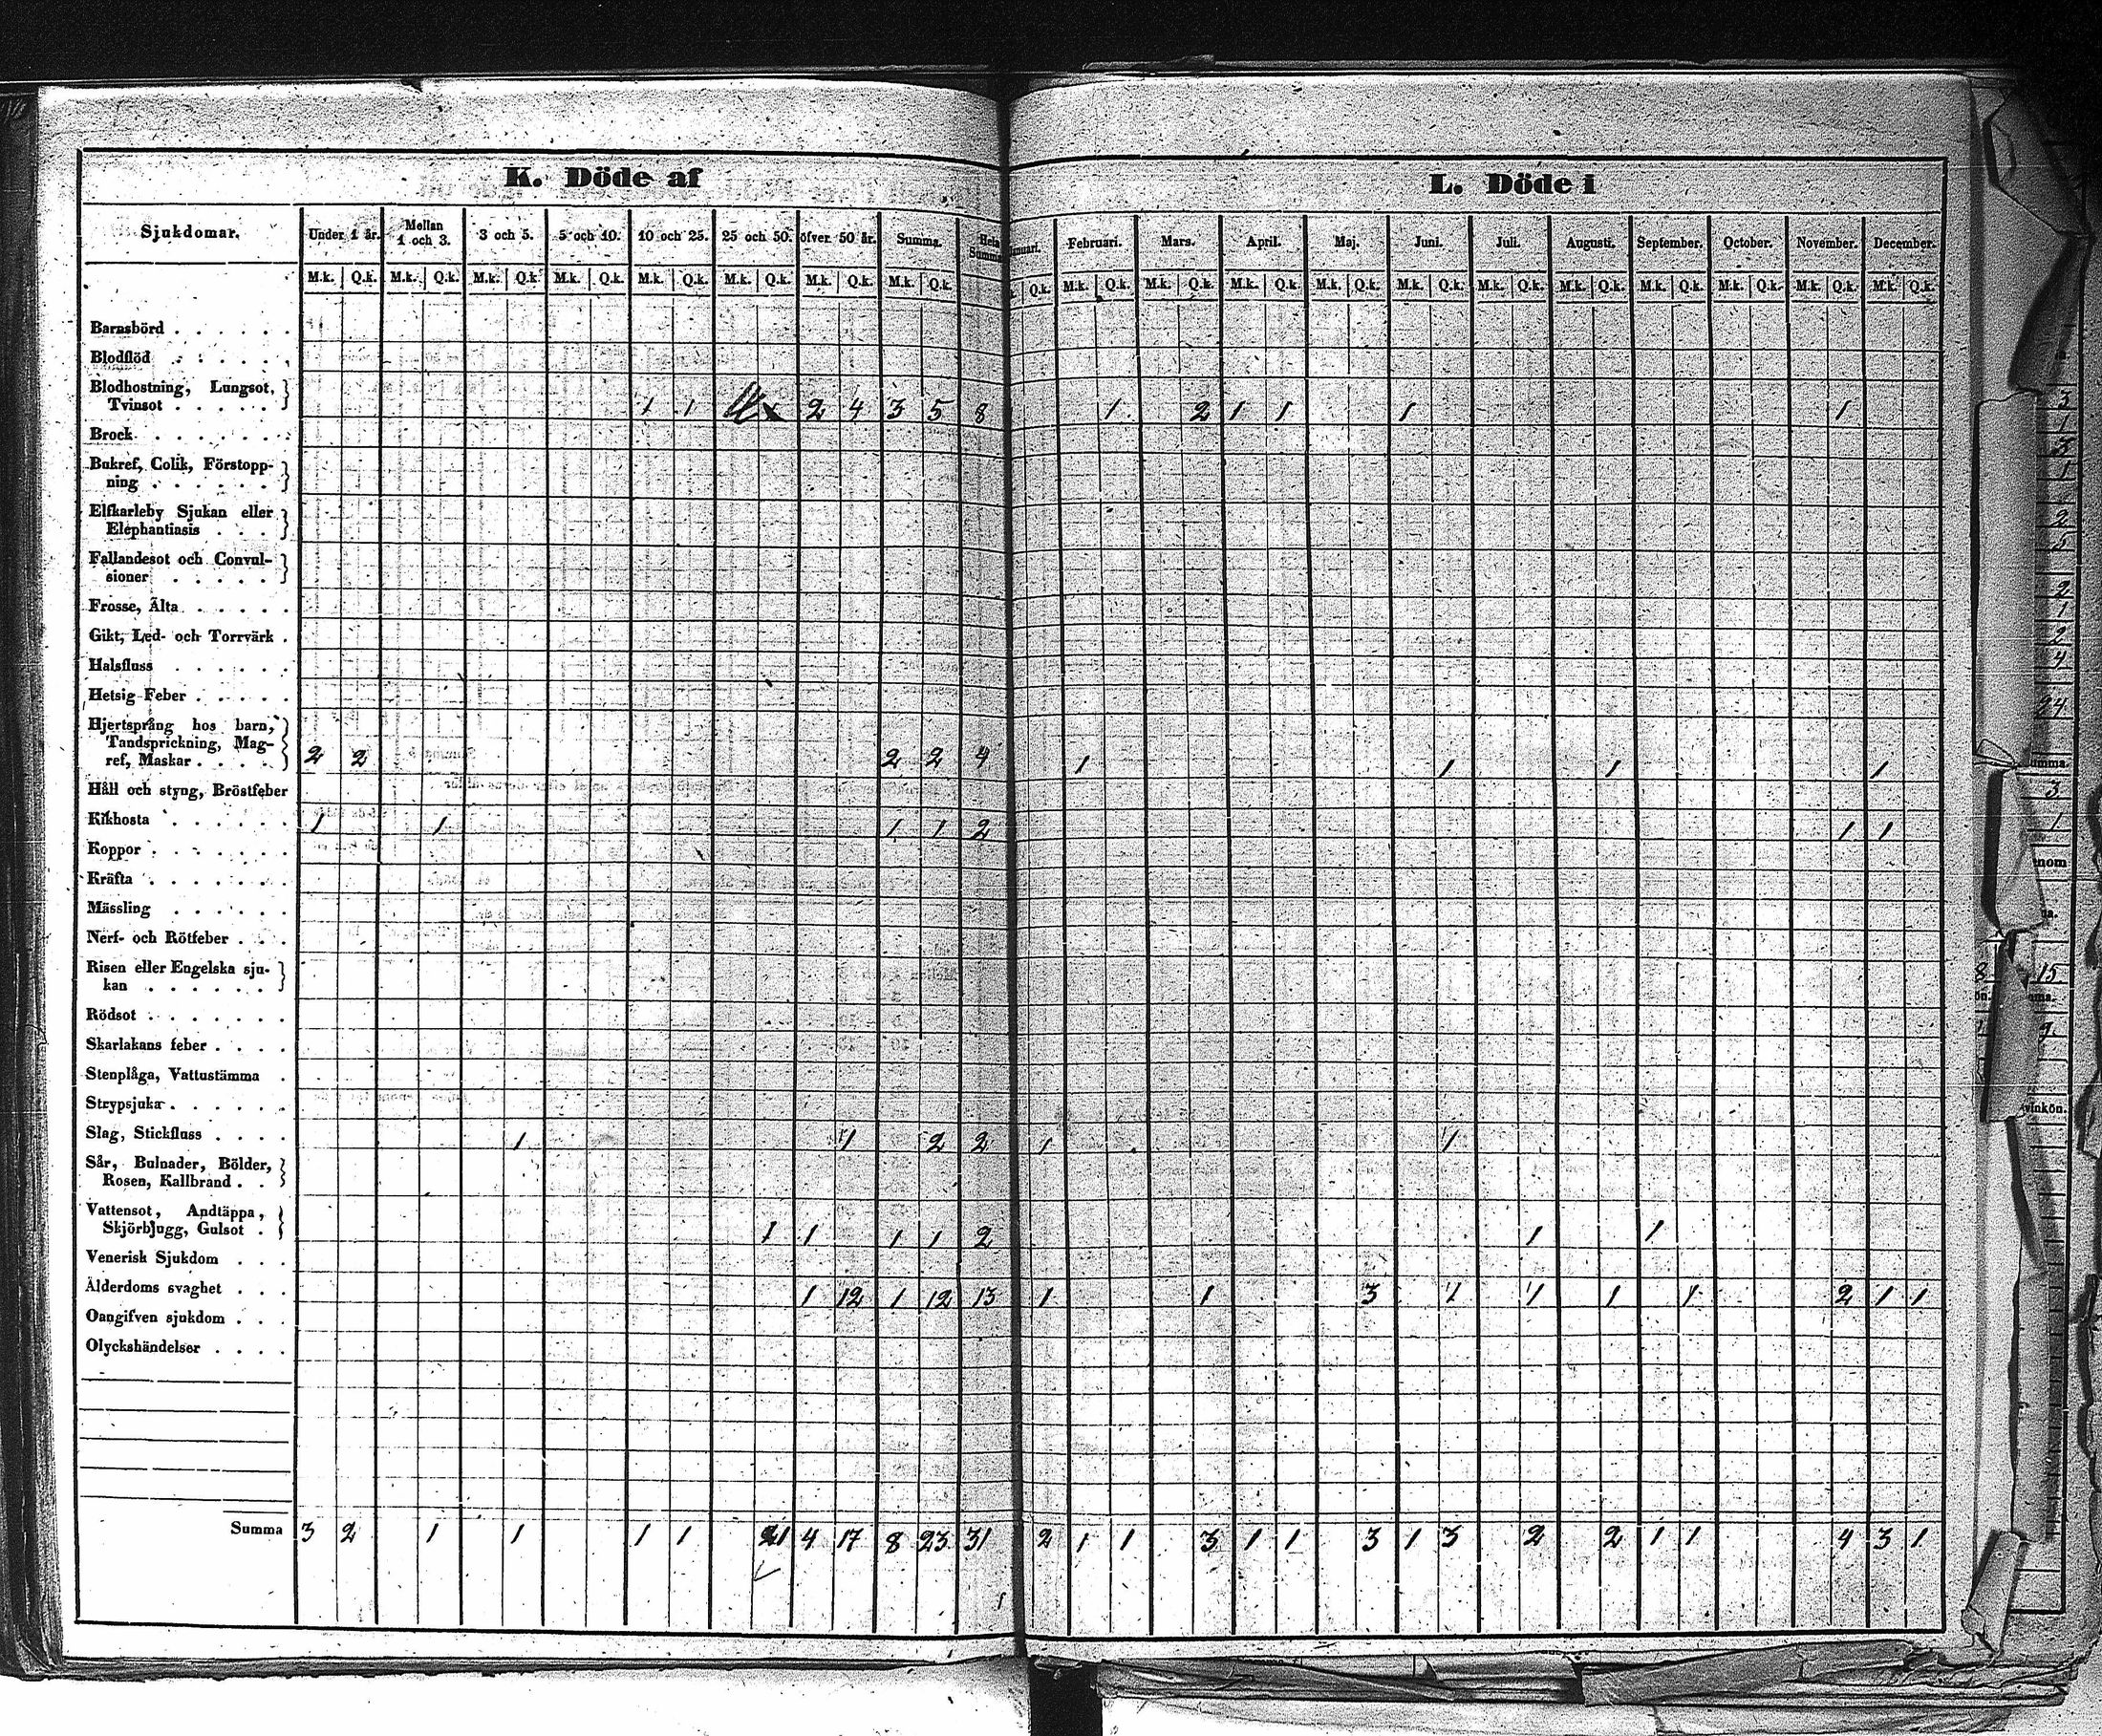 K. Döde af
L. Döde i
Sjukdomar. Under 1 år. Mellan 1 och 3. 3 och 5. 5 och 10. 10 och 25. 25 och 50. öfver 50 år. Summa. Hela Summa
Februari. Mars. April. Maj. Juni. Juli. Augusti. September. October. November. December.
M.k. Q.k. M.k. Q.k. M.k. Q.k. M.k. Q.k. M.k. Q.k. M.k. Q.k. M.k. Q.k. M.k. Q.k.
Q.k. M.k. Q.k. M.k. Q.k. M.k. Q.k. M.k. Q.k. M.k. Q.k. M.k. Q.k. M.k. Q.k. M.k. Q.k. M.k. Q.k. M.k. Q.k. M.k. Q.k.
Barnsbörd . . . . . .
Blodflöd . . . . . .
Blodhostning, Lungsot,
Tvinsot . . . . . 1 1 2 4 3 5 8 1 2 1 1 1 1
Brock . . . . . . .
Bukref, Colik, Förstopp-
ning . . . . . .
Elfkarleby Sjukan eller
Elephantiasis . . .
Fallandesot och Convul-
sioner . . . . .
Frosse, Älta . . . . .
Gikt, Led- och Torrvärk .
Halsfluss . . . . . .
Hetsig Feber . . . . .
Hjertsprång hos barn,
Tandsprickning, Mag-
ref, Maskar . . . . 2 2 2 2 4 1 1 1 1
Håll och styng, Bröstfeber
Kikhosta . . . . . . 1 1 1 1 2 1 1
Koppor . . . . . . .
Kräfta . . . . . . .
Mässling . . . . . .
Nerf- och Rötfeber . . .
Risen eller Engelska sju-
kan . . . . . .
Rödsot . . . . . . .
Skarlakans feber . . . .
Stenplåga, Vattustämma .
Strypsjuka . . . . . .
Slag, Stickfluss . . . . 1 1 2 2 1 1
Sår, Bulnader, Bölder,
Rosen, Kallbrand . .
Vattensot, Andtäppa,
Skjörbjugg, Gulsot . 1 1 1 1 2 1 1
Venerisk Sjukdom . . .
Ålderdoms svaghet . . . 1 12 1 12 13 1 1 3 1 1 1 1 2 1 1
Oangifven sjukdom . . .
Olyckshändelser . . . .
Summa 3 2 1 1 1 1 1 4 17 8 23 31 2 1 1 3 1 1 3 1 3 2 2 1 1 4 3 1